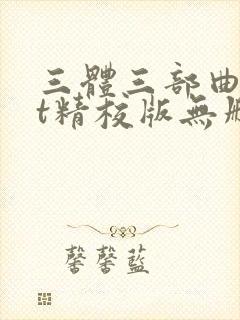 三體三部曲
t精校版無
馨馨藍